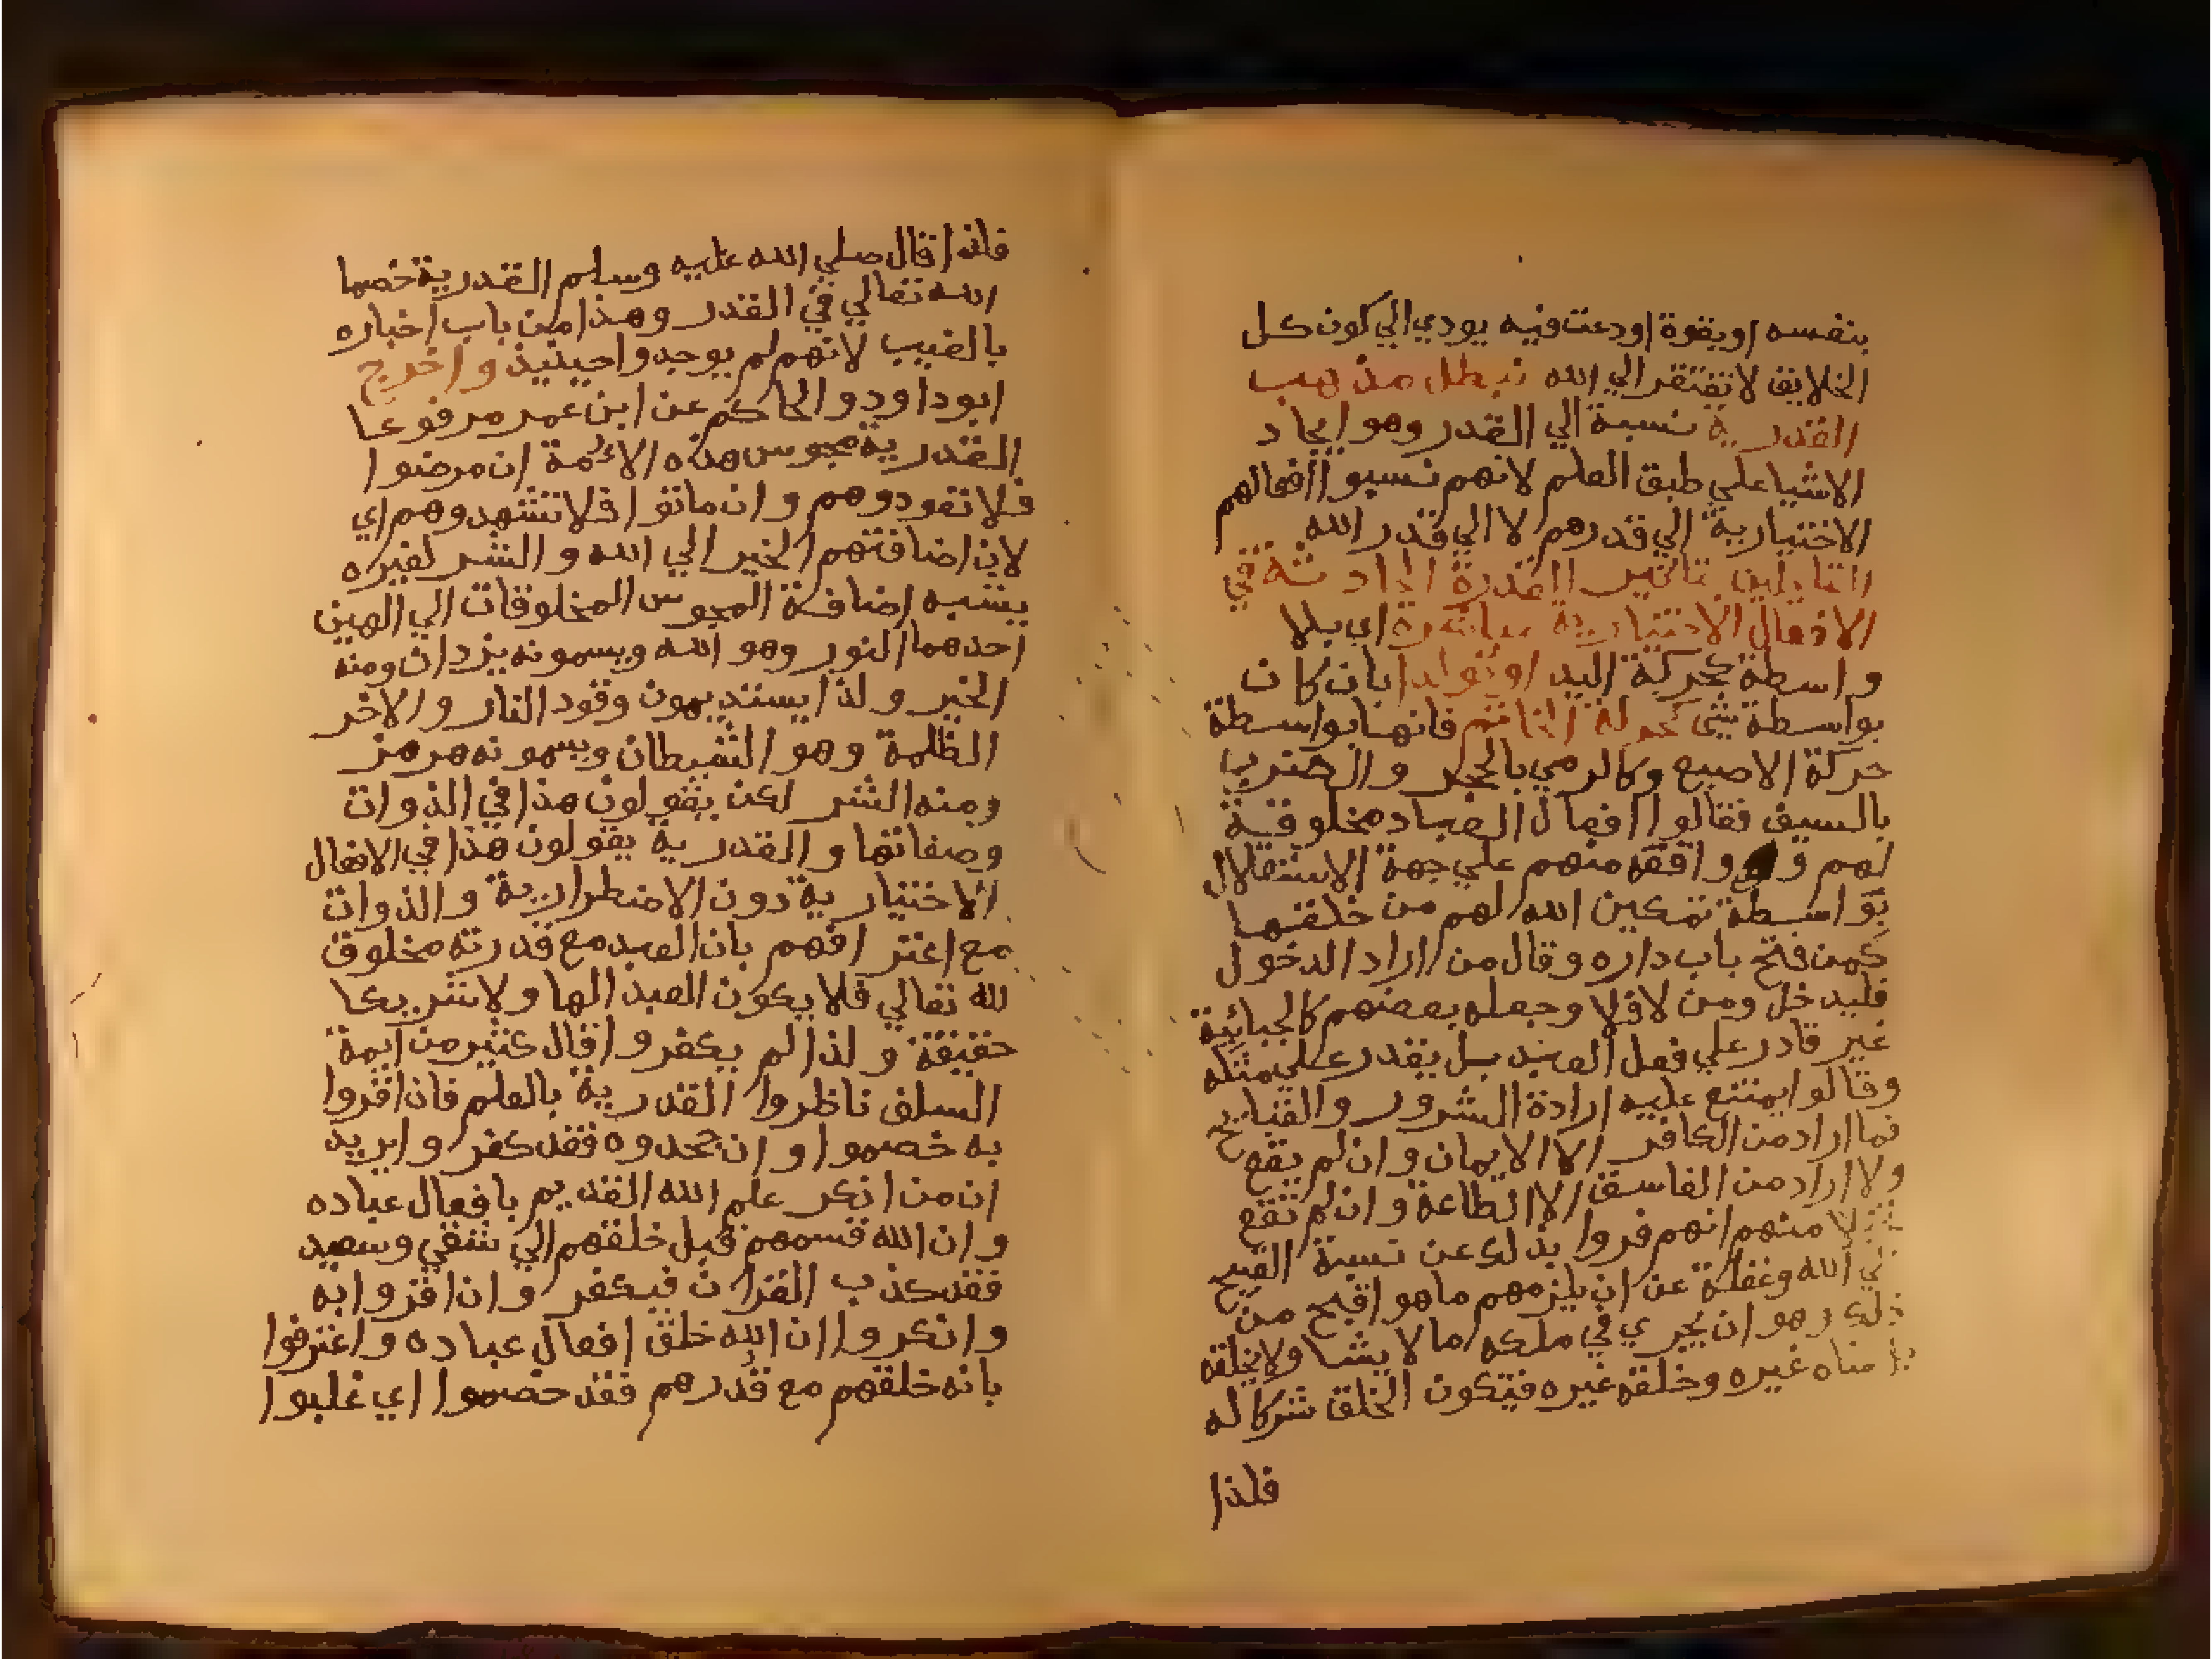 بنفسه او بقوة اودعت فيه يودي الي كون كل
الخلايق لا تفتقر الي الله تبطل مذهب
القدرية نسبة الي القدر وهو ايجاد
الاشيا علي طبق العلم لانهم نسبوا افعالهم
الاختيارية الي قدرهم لا الي قدر الله
القايلين بتاثير القدرة الحادثة في
الافعال الاختيارية مباشرة اي بلا
واسطة كحركة اليد او تولدا بان كان
بواسطة شي كحركة الخاتم فانها بواسطة
حركة الاصبع وكالرمي بالحجر والضرب
بالسيف فقالوا افعال العباد مخلوقة
لهم وواقعه منهم علي جهة الاستقلال
بواسطة تمكين الله لهم من خلقها
كمن فتح باب داره وقال من اراد الدخول
فليدخل ومن لا فلا وجعله بعضهم كالجبائية
غير قادر علي فعل العبد بل يقدر علي مثله
وقالوا يمتنع عليه ارادة الشرور والقبايح
فما اراد من الكافر الا الايمان وان لم يقع
ولا اراد من الفاسق الا الطاعة وان لم تقع
منهم انهم فروا بذلك عن نسبة القبيح
الي الله وغفلة عن ان يلزمهم ما هو اقبح من
ذلك وهو ان يجري في ملكه ما لا يشا ولا يخلقه
غيره وخلقه غيره فتكون الخلق شركا له
فلذا
فلذا قال صلي الله عليه وسلم القدرية خصما
الله تعالي في القدر وهذا من باب اخباره
بالغيب لانهم لم يوجدوا حينيذ واخرج
ابو داود والحاكم عن ابن عمر مرفوعا
القدرية مجوس هذه الائمة ان مرضوا
فلا تعودوهم وان ماتوا فلا تشهدوهم اي
لان اضافتهم الخير الي الله والشر لغيره
يشبه اضافة المجوس المخلوقات الي الهين
احدهما النور وهو الله ويسمونه يزدان ومنه
الخير ولذا يستديمون وقود النار والاخر
الظلمة وهو الشيطان ويسمونه هرمز
ومنه الشر لكن يقولون هذا في الذوات
وصفاتها والقدرية يقولون هذا في الافعال
الاختيارية دون الاضطرارية والذوات
مع اعترافهم بان العبد مع قدرته مخلوق
لله تعالي فلا يكون العبد الها ولا شريكا
حقيقة ولذا لم يكفروا قال كثير من ايمة
السلف ناظروا القدرية بالعلم فان اقروا
به خصموا وان جحدوه فقد كفروا يريد
ان من انكر علم الله القديم بافعال عباده
وان الله قسمهم قبل خلقهم الي شقي وسعيد
فقد كذب القران فيكفر وان اقروا به
وانكروا ان الله خلق افعال عباده واعترفوا
بانه خلقهم مع قدرهم فقد خصموا اي غلبوا